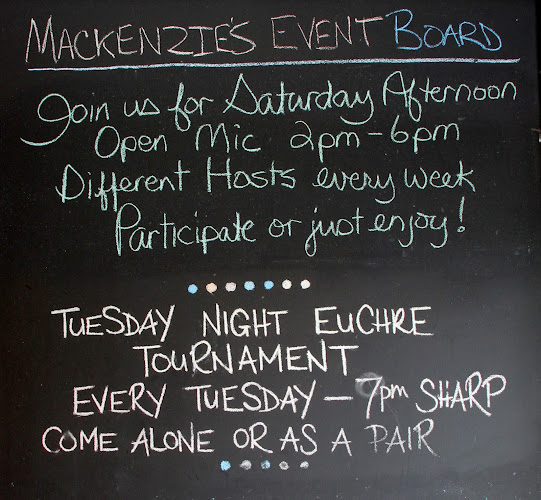 MACKENZIE'S EVENT BOARD
Join us for Saturday Afternoon
Open Mic 2pm - 6pm
Different Hosts every week
Participate or just enjoy!
TUESDAY NIGHT EUCHRE
TOURNAMENT
EVERY TUESDAY - 7pm SHARP
COME ALONE OR AS A PAIR